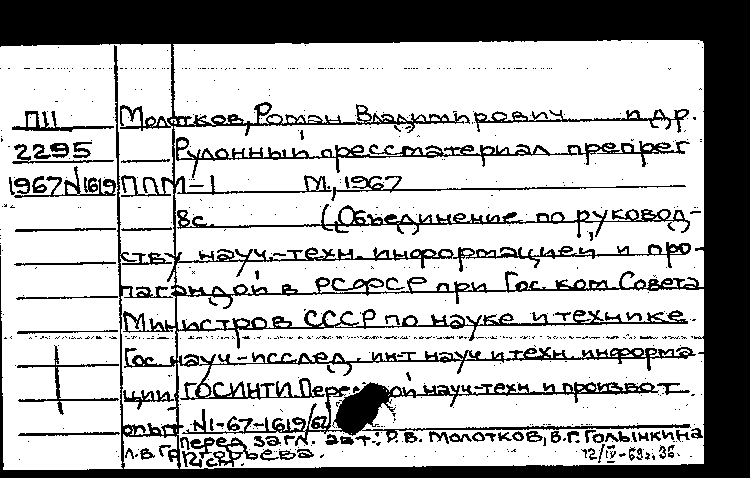 П11 Молотков, Роман Владимирович и др.
2295 Рулонный прессматериал препрег
1967 N1619 ППМ-1 М., 1967
8с. (Объединение по руковод-
ству науч.-техн. информацией и про-
пагандой в РСФСР при Гос. ком. Совета
Министров СССР по науке и технике.
Гос. науч.-исслед. ин-т науч. и техн. информа-
ции ГОСИНТИ. Передовой науч.-техн. и произвот.
опыт. N1-67-1619/62
Перед загл. авт.: Р.В. Молотков, В.Г. Голынкина
Л.В. Григорьева.
12/IV-68г.